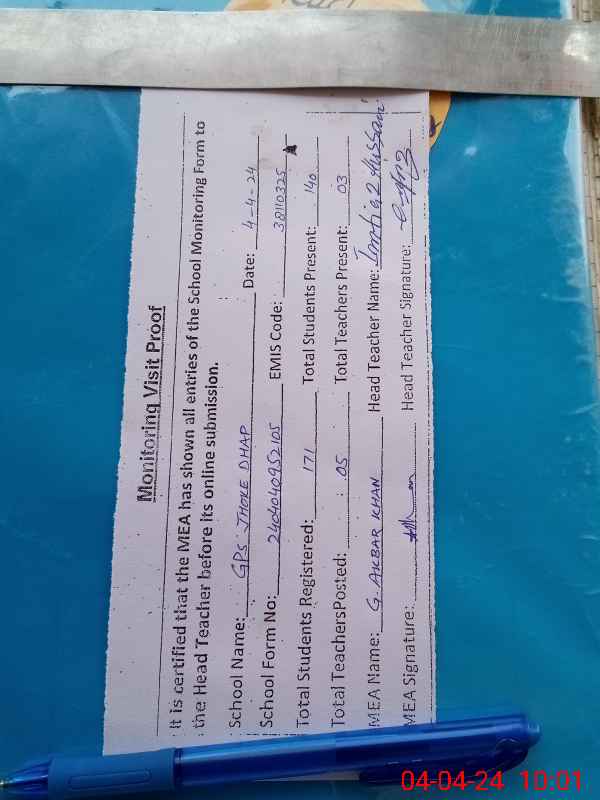 Monitoring Visit Proof
It is certified that the MEA has shown all entries of the School Monitoring Form to
the Head Teacher before its online submission.
School Name: GPS JHOKE DHAP Date: 4-4-24
School Form No: 2404040952105 EMIS Code: 38110325
Total Students Registered: 171 Total Students Present: 140
Total TeachersPosted: 05 Total Teachers Present: 03
MEA Name: G. AKBAR KHAN Head Teacher Name: Imtiaz Hussain
MEA Signature: Head Teacher Signature:
04-04-24 10:01